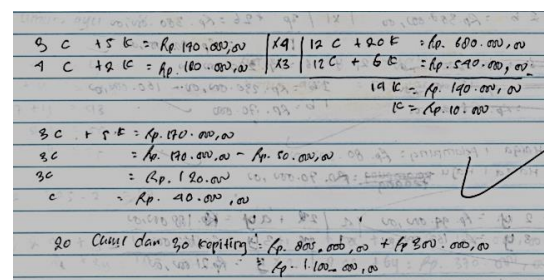 3 C + 5 K = Rp. 170.000,00 | x4 | 12 C + 20 K = Rp. 680.000,00
4 C + 2 K = Rp. 180.000,00 | x3 | 12 C + 6 K = Rp. 540.000,00
14 K = Rp. 140.000,00
K = Rp. 10.000
3C + 5 K = Rp. 170.000,00
3C = Rp. 170.000,00 - Rp. 50.000,00
3C = Rp. 120.000
C = Rp. 40.000,00
20 Cumi dan 30 kepiting = Rp. 800.000,00 + Rp 300.000,00
= Rp. 1.100.000,00